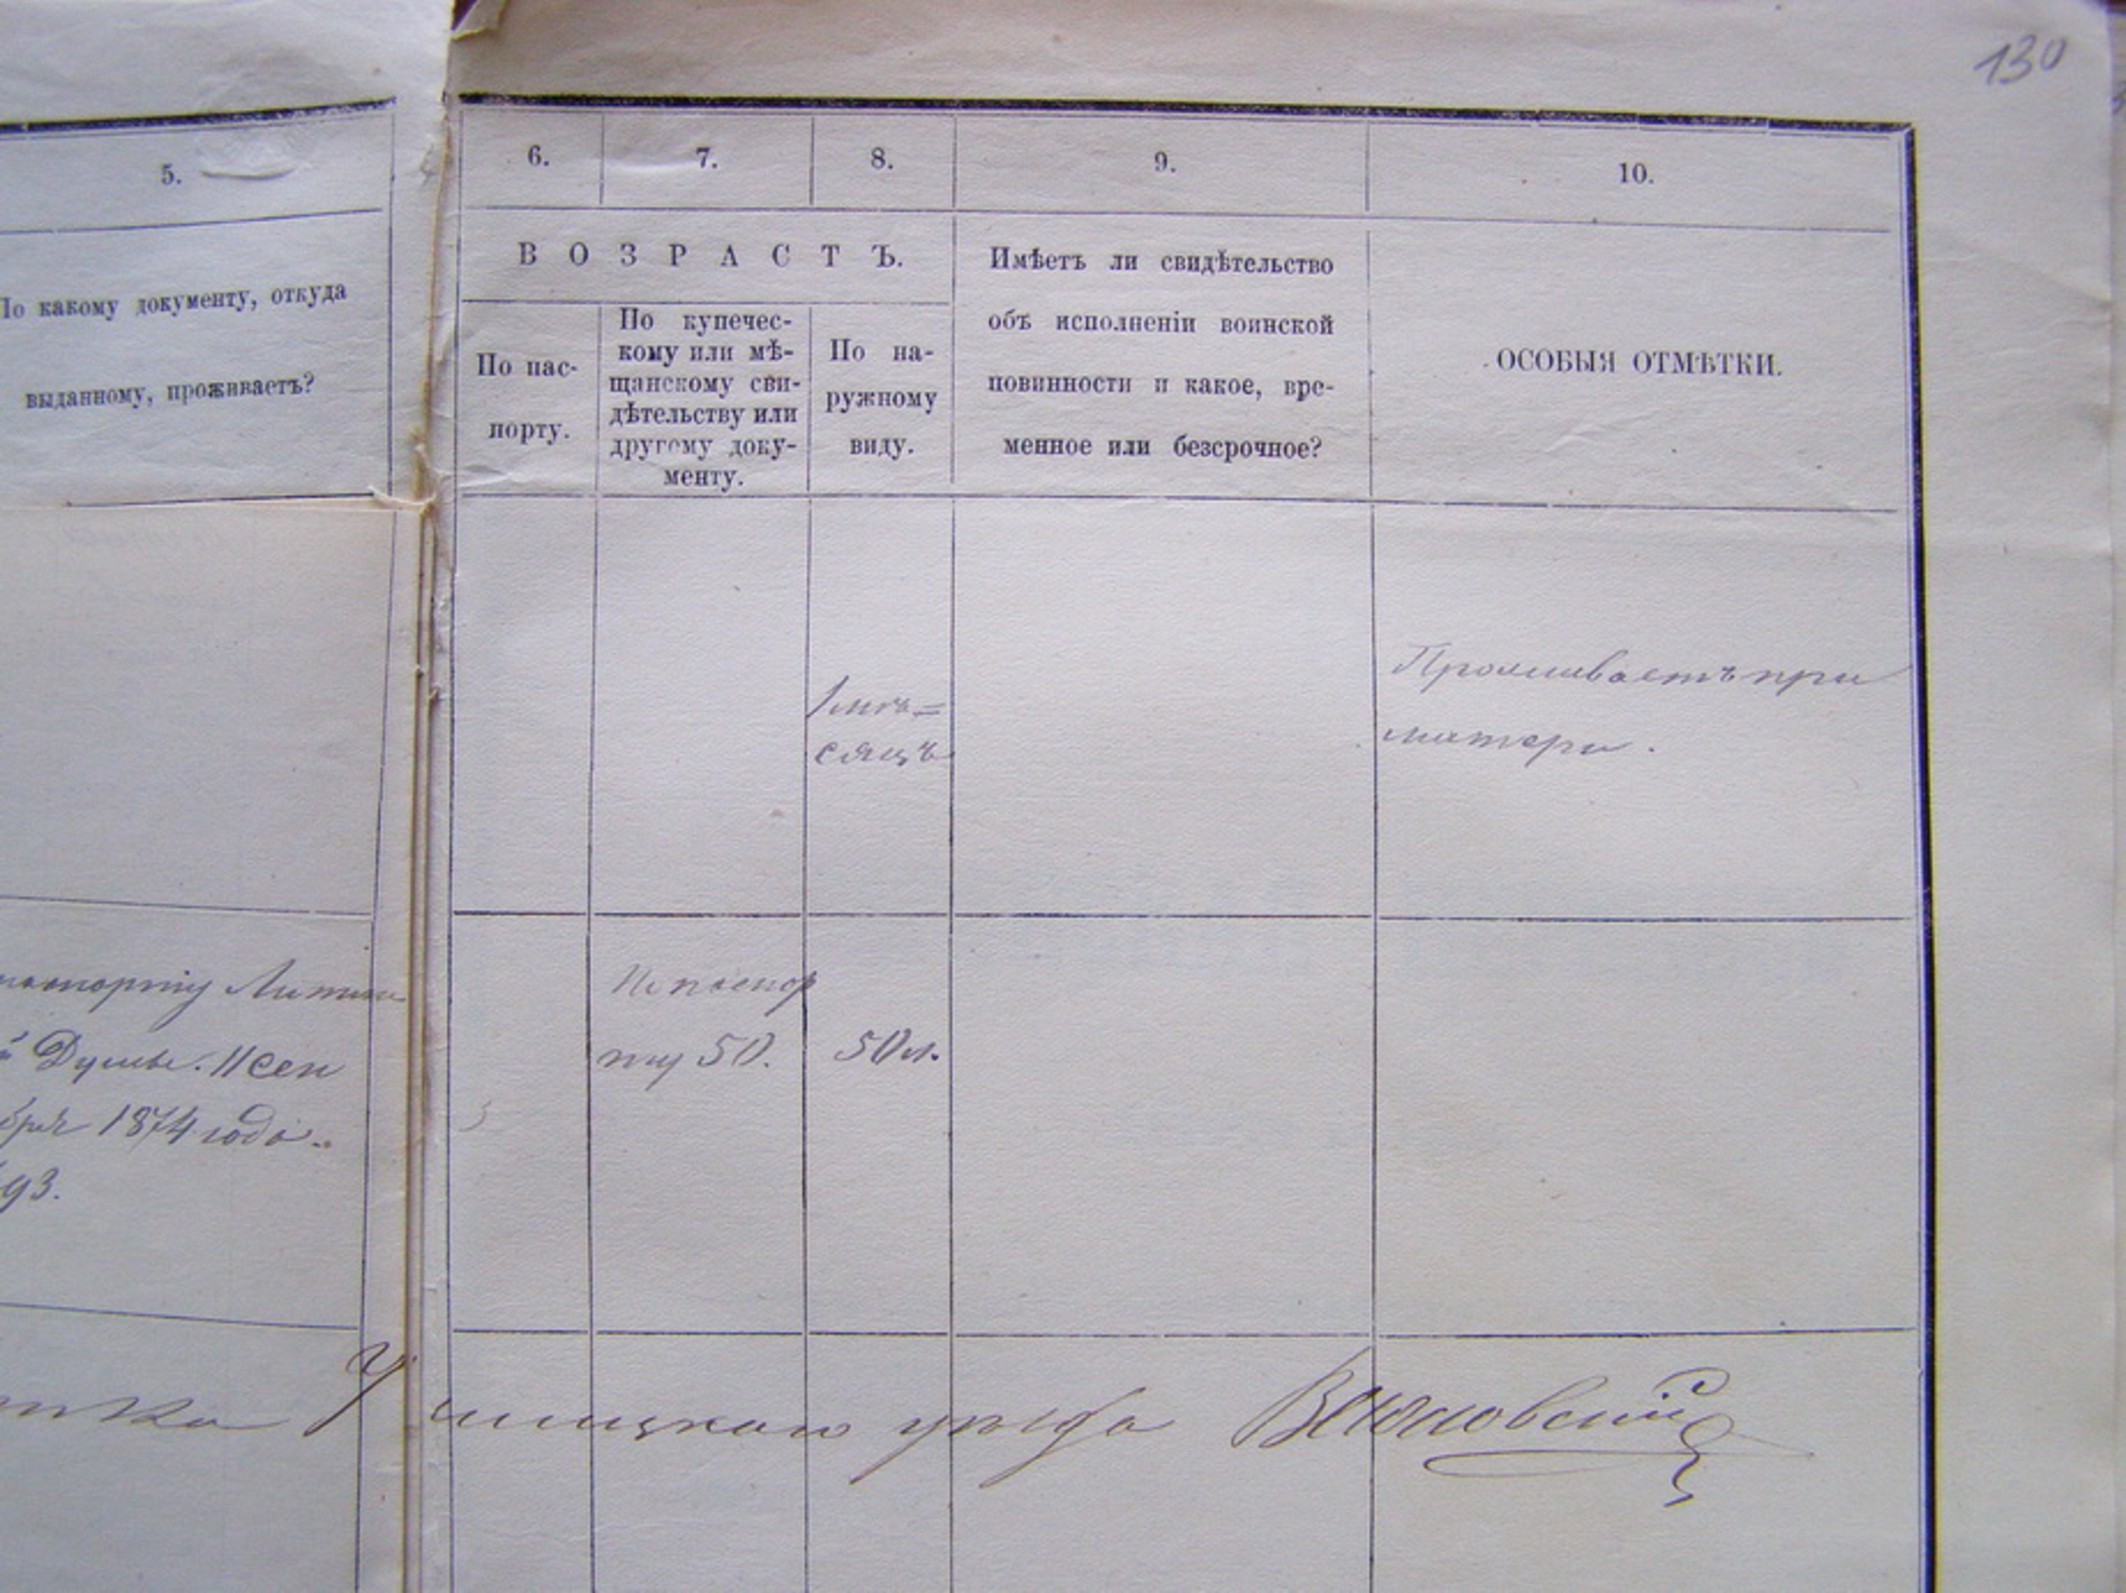 130
5.
6.
7.
8.
9.
10.
По какому документу, откуда
выданному, проживаетъ?
ВОЗРАСТЪ.
По пас-
порту.
По купечес-
кому или мѣ-
щанскому сви-
дѣтельству или
другому доку-
менту.
По на-
ружному
виду.
Имѣетъ ли свидѣтельство
объ исполненіи воинской
повинности и какое, вре-
менное или безсрочное?
ОСОБЫЯ ОТМѢТКИ.
1 мѣ=
сяцъ
Проживаетъ при
матери.
паспорту
Думы. 11 сен
бря 1874 года
93.
По паспор
ту 50.
50 л.
Ушицкаго уѣзда